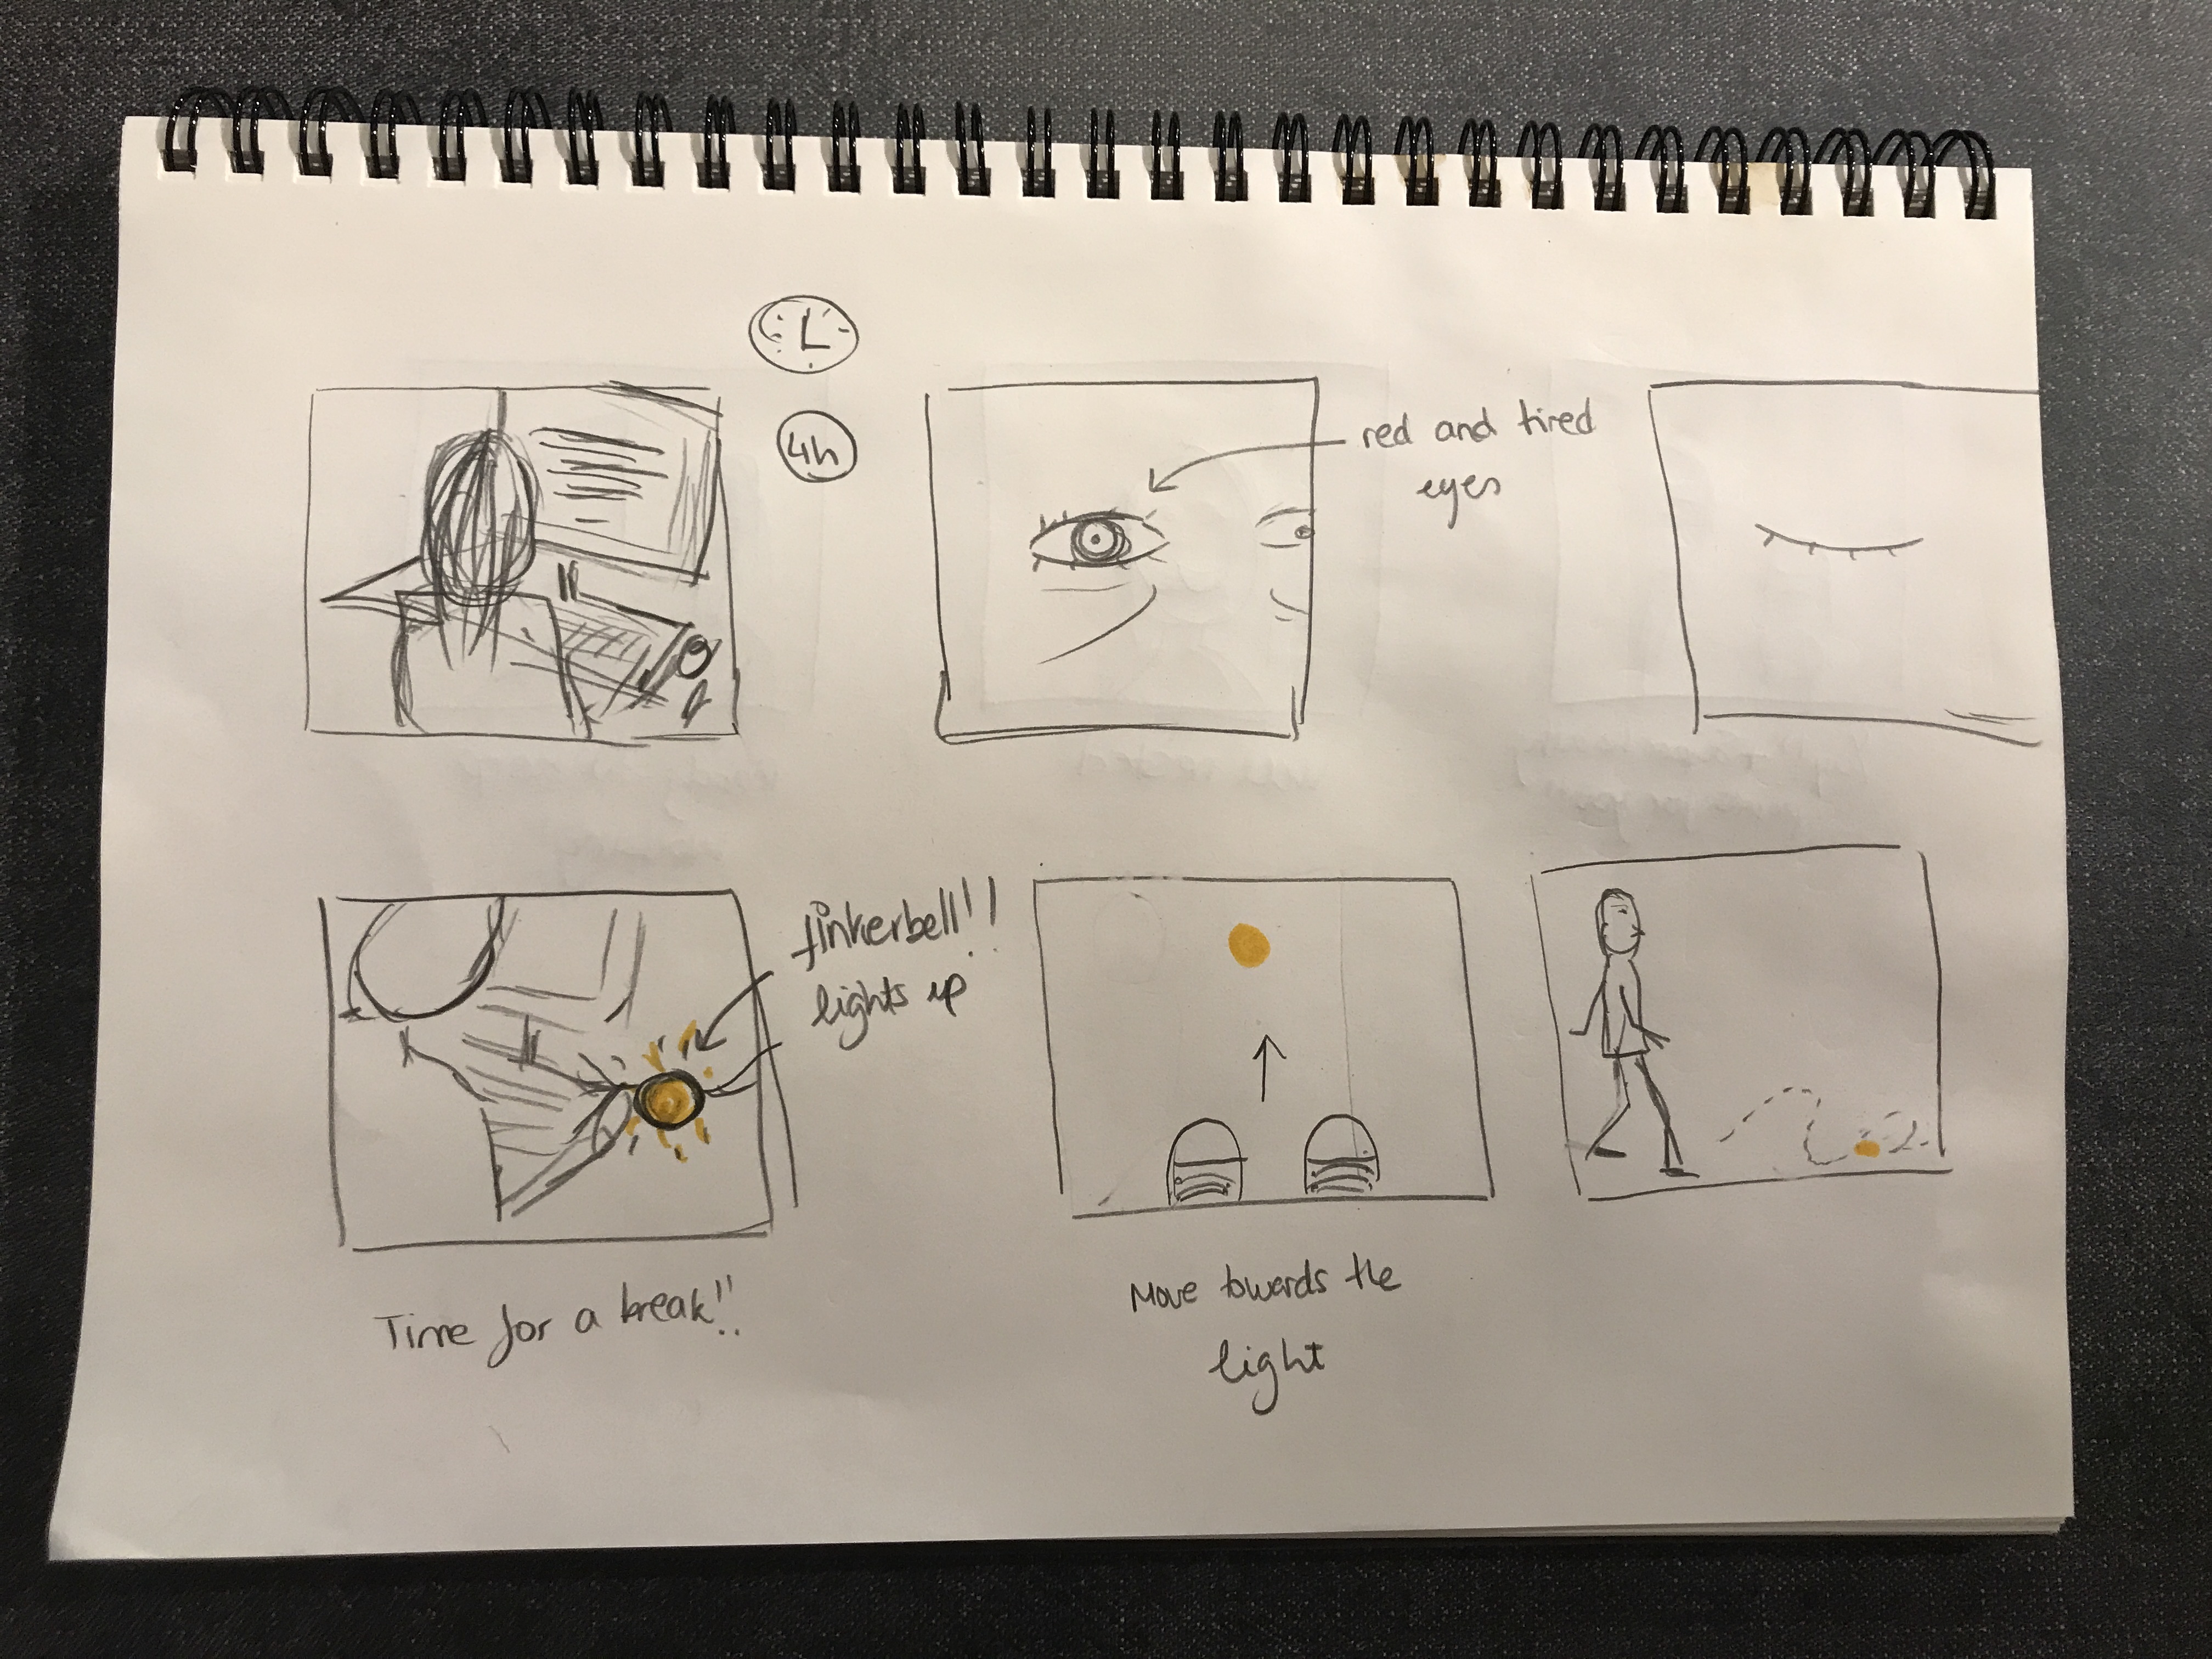 4h
red and tired
eyes
tinkerbell!!
lights up
Time for a break!!
Move towards the
light